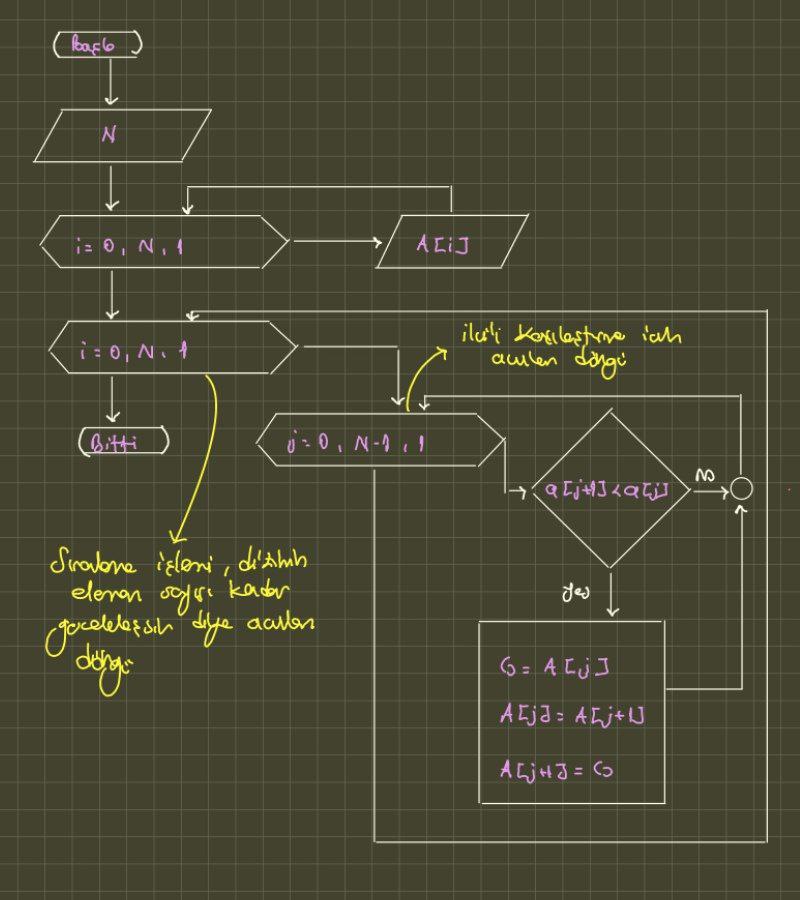 Başla
N
i = 0, N, 1
A[i]
i = 0, N, 1
ikili karşılaştırma için
açılan döngü
Bitti
j = 0, N-1, 1
a[j+1] < a[j]
No
yes
Sıralama işlemi, dizinin
eleman sayısı kadar
gerçekleşsin diye açılan
döngü
G = A[j]
A[j] = A[j+1]
A[j+1] = G